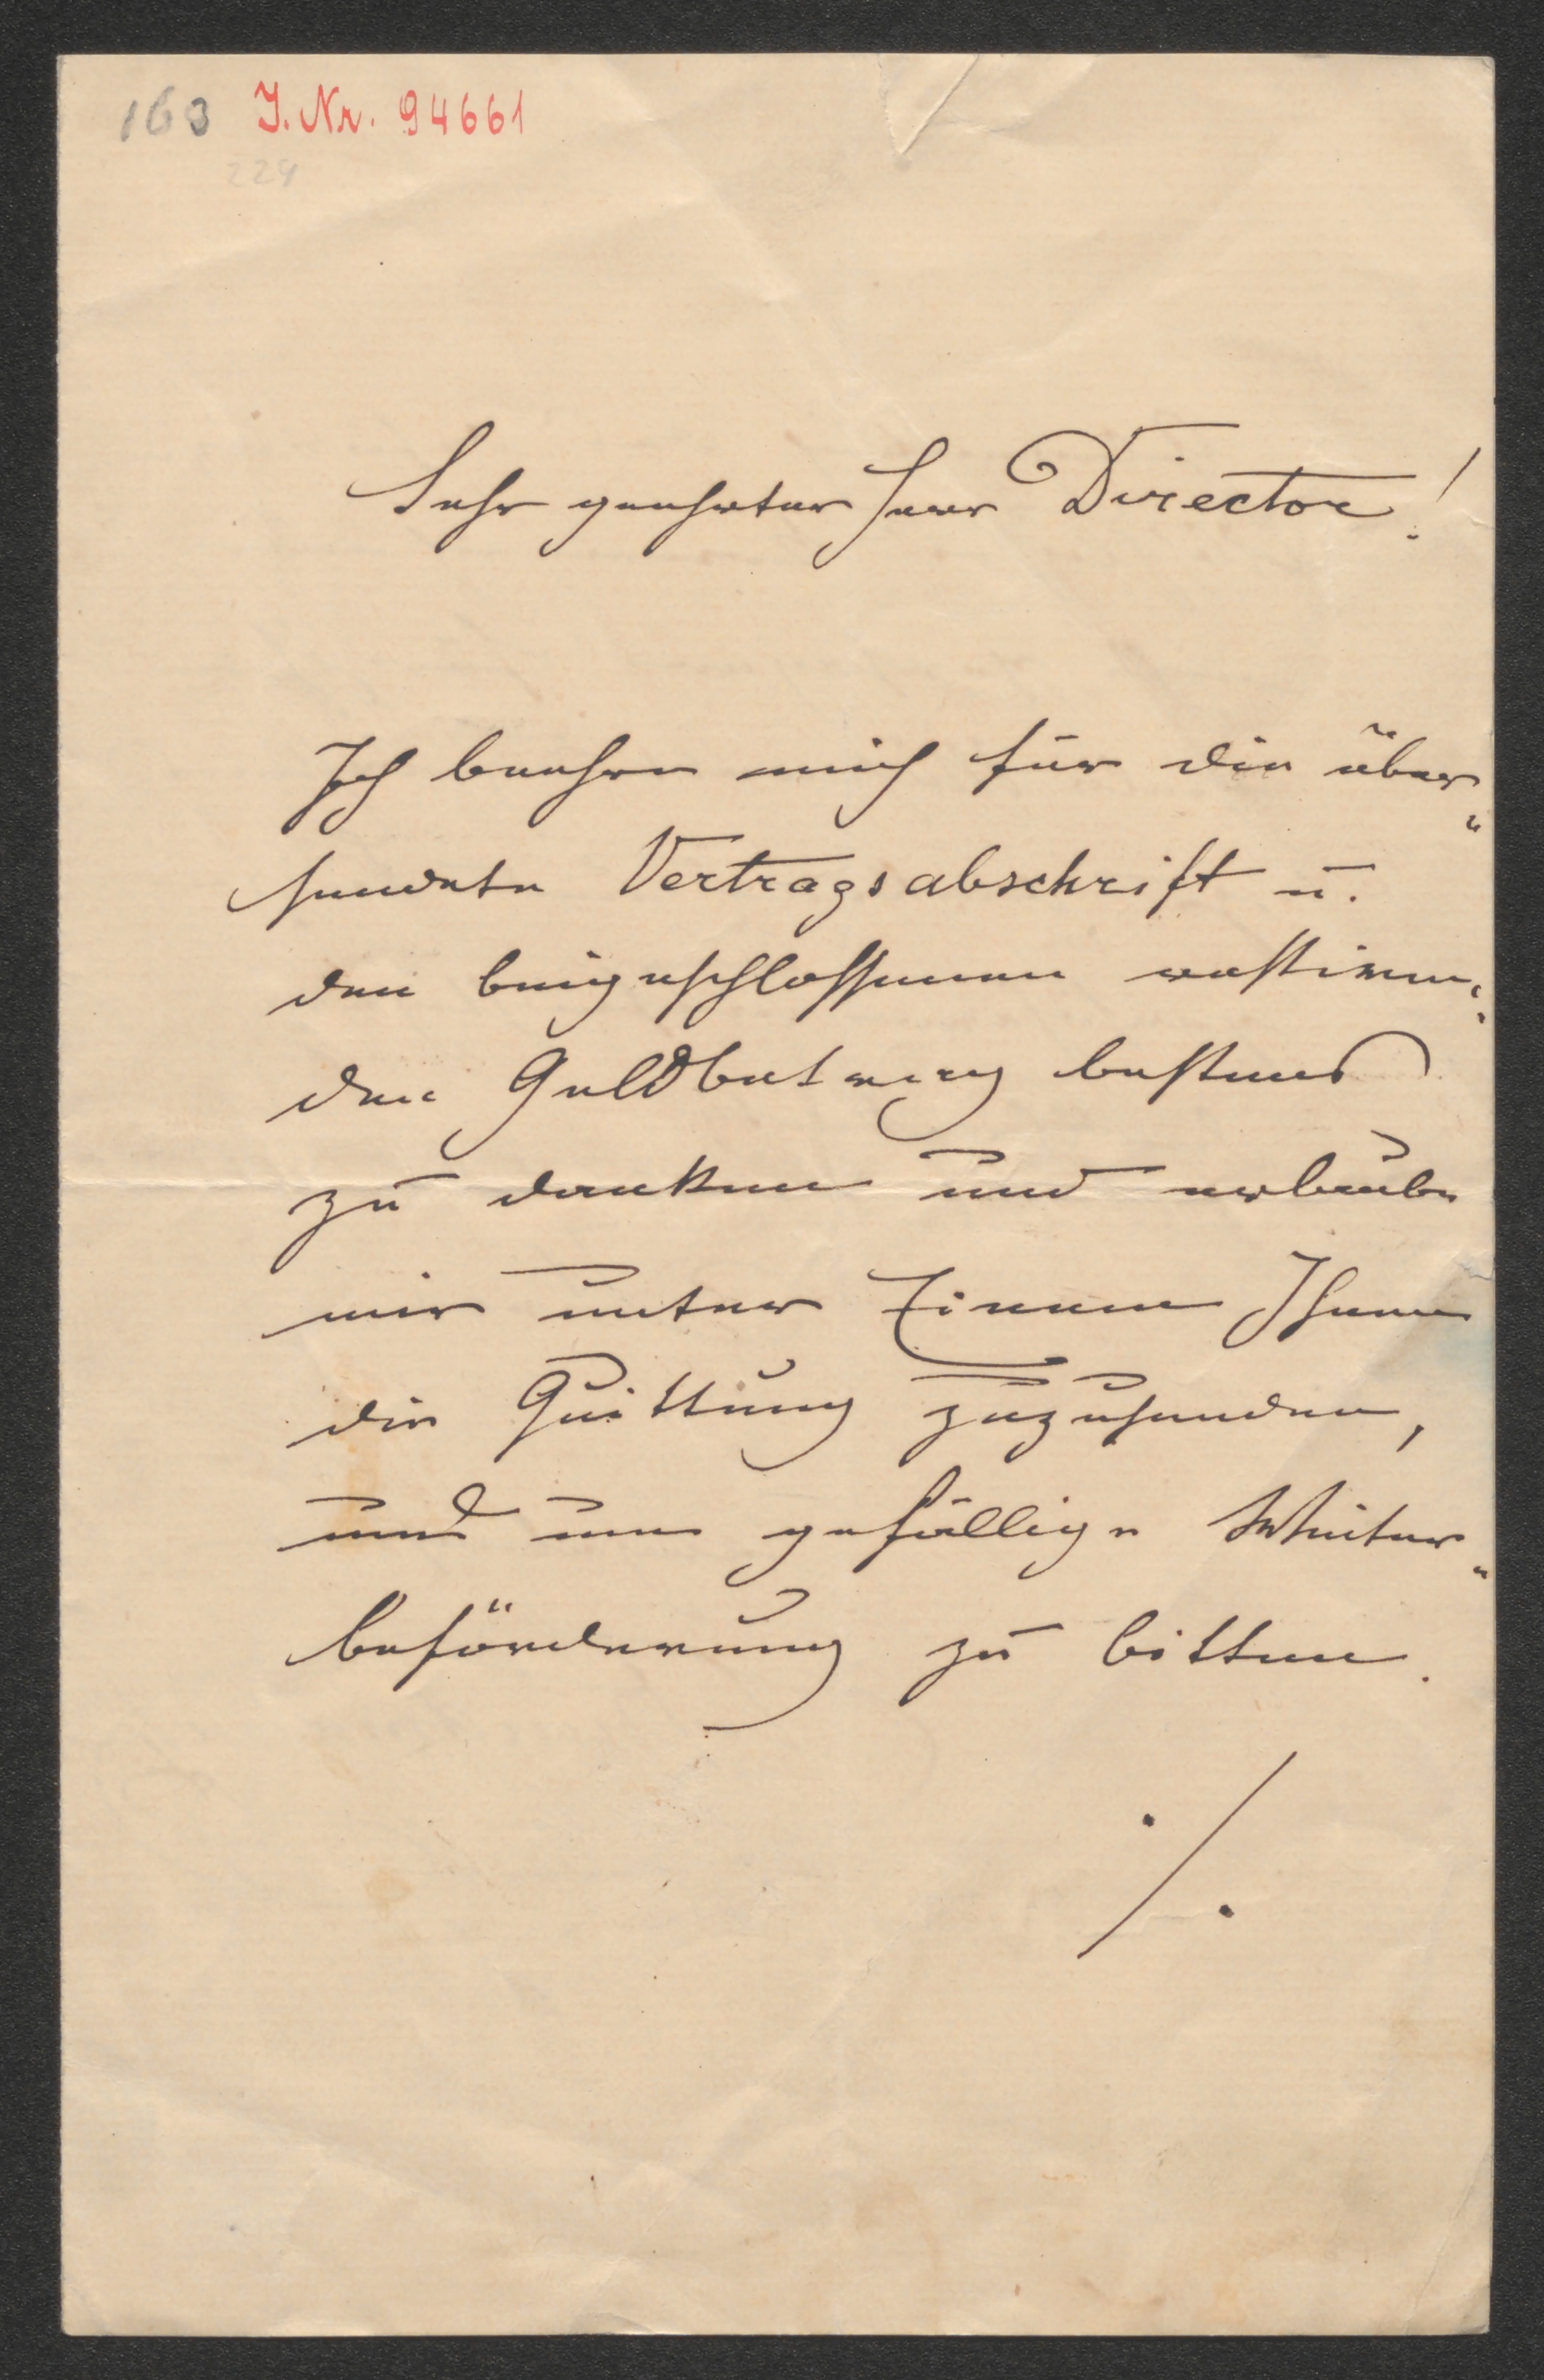 163 I. Nr. 94661
229
Sehr geehrter Herr Director!
Ich beehre mich für die über„
sendete Vertragsabschrift u.
den beigeschlossenen restiren„
den Geldbetrag bestens
zu danken und erlaube
mir unter Einem Ihnen
die Quittung zuzusenden,
und um gefällige Weiter„
beförderung zu bitten.
./.